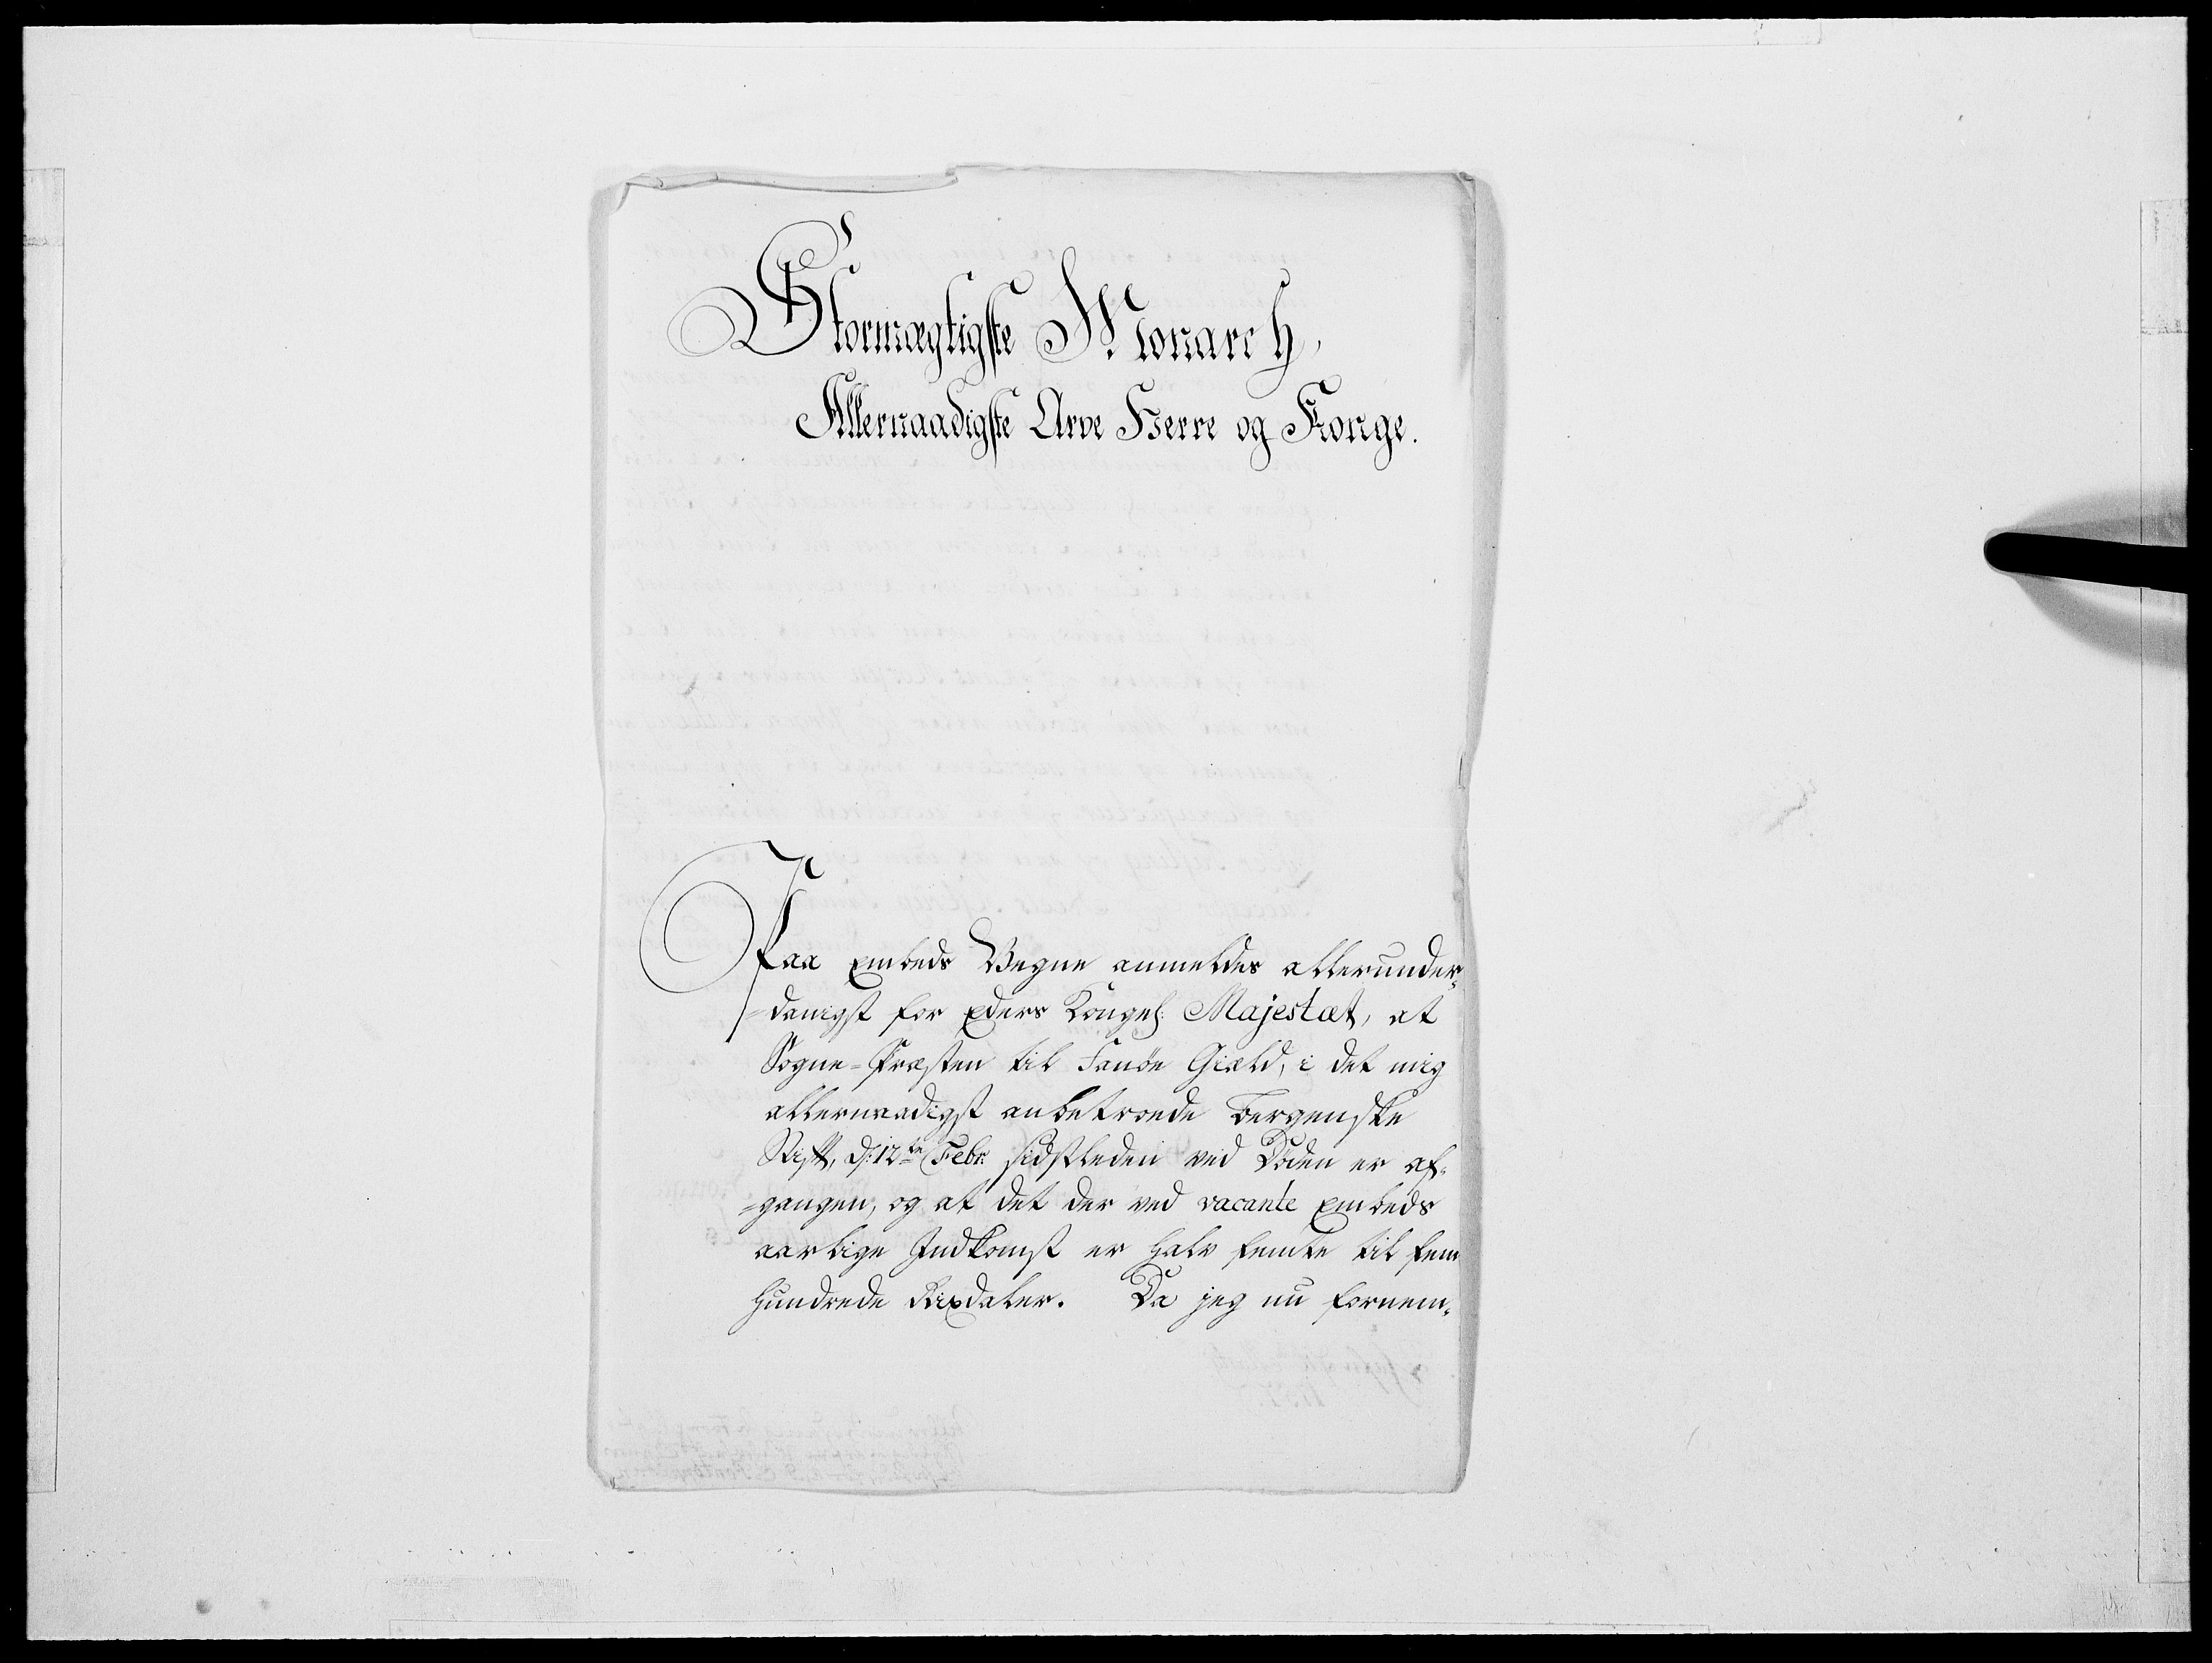 Stormægtigste Monarch,
Allernaadigste Arve Herre og Konge.
Paa Embeds Vegne anmeldes allerunder-
-danigst for Eders Kongel: Majestæt, at
Sogne-Præsten til Fanöe Giæld, i det mig
allernaadigst anbetroede Bergenske
Stift, d: 12te Febr: sidstleden ved Döden er af-
-gangen, og at det der ved vacante Embeds
aarlige Indkomst er halv femte til fem
hundrede Rixdaler. Da jeg nu fornem-